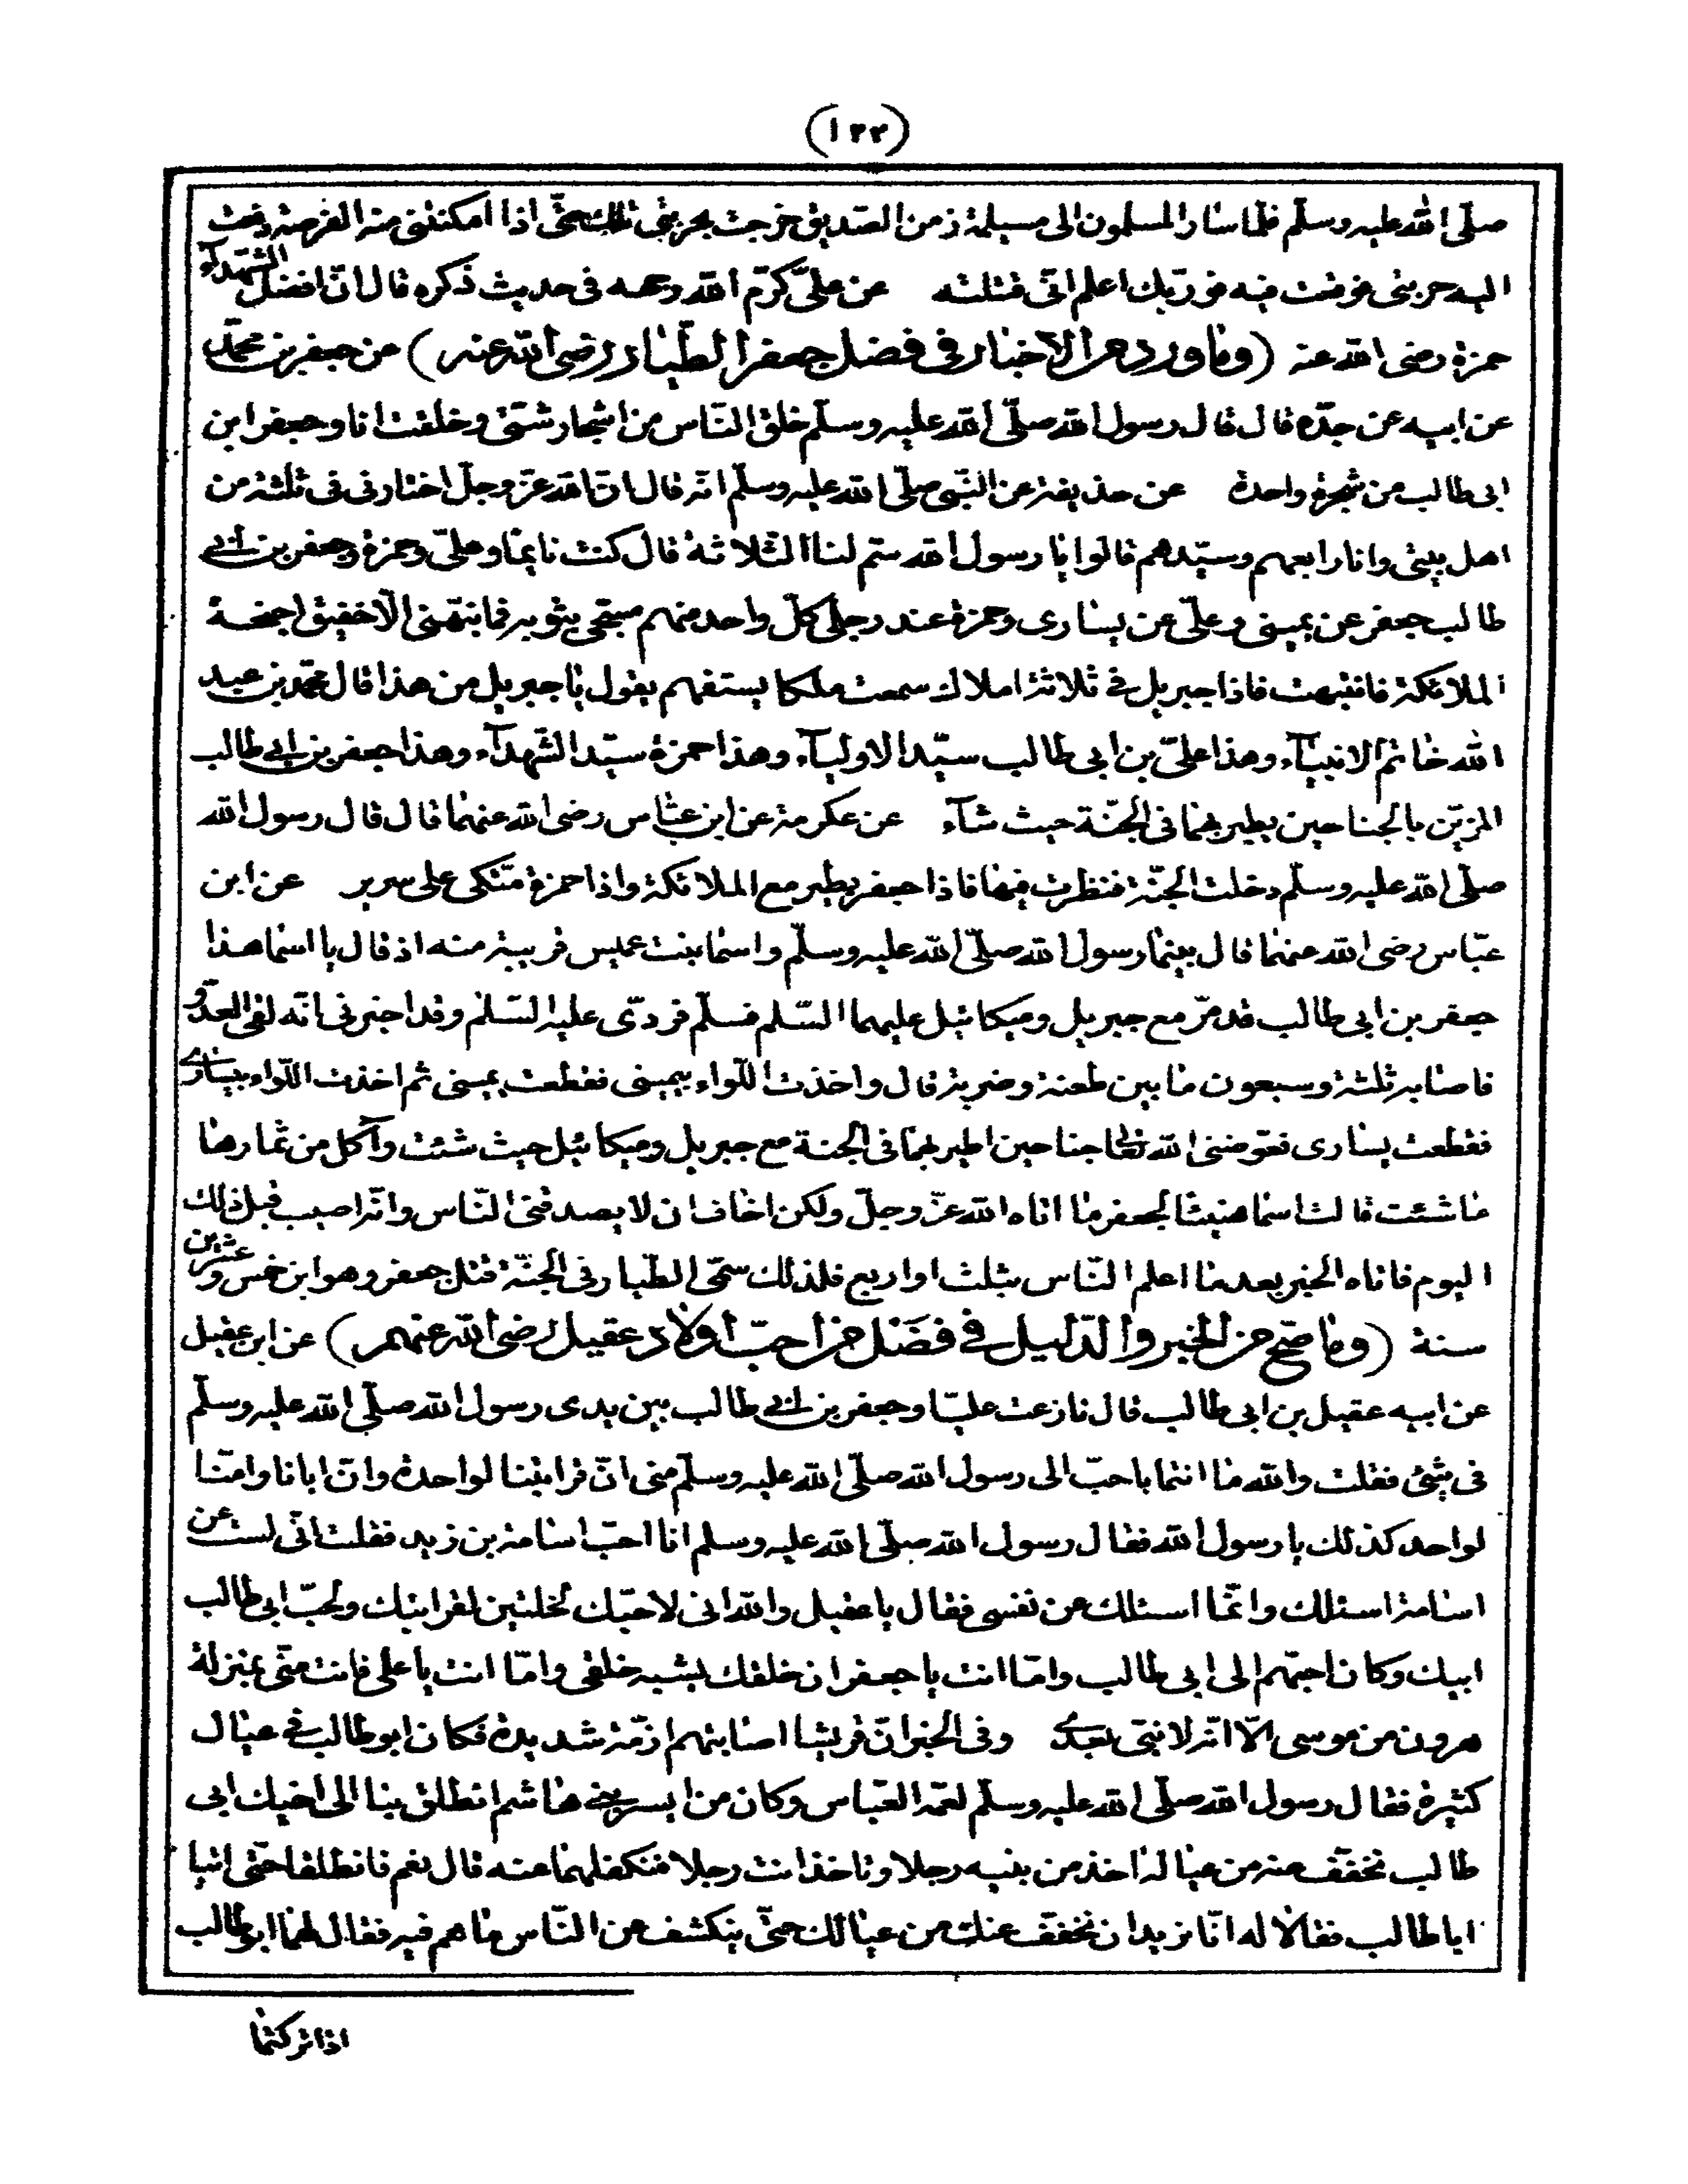 (١٢٢)
صلّى الله عليه وسلّم فلما سار المسلمون الى مسيلمة زمن الصديق خرجت بحربتى تلك حتّى اذا امكنتنى منه الفرصة دفعت
اليه حربتى فوقعت فيه فوربّك اعلم انّى قتلته عن علىّ كرّم الله وجهه فى حديث ذكره قال انّ افضل الشّهدآء
حمزة رضى الله عنه (وما ورد من الاخبار فى فضل جعفر الطّيار رضى الله عنه) عن جعفر بن محمّد
عن ابيه عن جدّه قال قال رسول الله صلّى الله عليه وسلّم خلق النّاس من اشجار شتّى وخلقت انا وجعفر ابن
ابى طالب من شجرة واحدة عن حذيفة عن النبّى صلّى الله عليه وسلّم انّه قال انّ الله عزّ وجلّ اختارنى فى ثلثة من
اهل بيتى وانا رابعهم وسيّدهم قالوا يا رسول الله سمّ لنا الثلاثة قال كنت نايما وعلىّ وحمزة وجعفر بن ابى
طالب جعفر عن يمينى وعلىّ عن يسارى وحمزة عند رجلى كلّ واحد منهم مسجّى بثوبه فما نبّهنى الّا خفيق اجنحة
الملائكة فانتبهت فاذا جبريل فى ثلاثة املاك سمعت ملكا يستفهم يقول يا جبريل من هذا قال محمّد بن عبد
الله خاتم الانبيآء وهذا علىّ بن ابى طالب سيّد الاوليآء وهذا حمزة سيّد الشّهدآء وهذا جعفر بن ابى طالب
المزيّن بالجناحين يطير بهما فى الجنّة حيث شآء عن عكرمة عن ابن عبّاس رضى الله عنهما قال قال رسول الله
صلّى الله عليه وسلّم دخلت الجنّة فنظرت فيها فاذا جعفر يطير مع الملائكة واذا حمزة متّكى على سرير عن ابن
عبّاس رضى الله عنهما قال بينما رسول الله صلّى الله عليه وسلّم واسما بنت عميس قريبة منه اذ قال يا اسما هذا
جعفر بن ابى طالب قد مرّ مع جبريل وميكائيل عليهما السّلم فسلّم فردّى عليه السّلم وقد اخبرنى انّه لقى العدّو
فاصابه ثلثة وسبعون ما بين طعنة وضربة قال واخذت اللّواء بيمينى فقطعت يمينى ثم اخذت اللّواء بيسارى
فقطعت يسارى فعوّضنى الله تعالى جناحين اطير بهما فى الجنة مع جبريل وميكائيل حيث شئت وآكل من ثمارها
ما شئت قالت اسما هنيئا لجعفر ما اتاه الله عزّ وجلّ ولكن اخاف ان لا يصدقنى النّاس وانّه اصيب قبل ذلك
اليوم فاتاه الخبر بعد ما اعلم النّاس بثلث او اربع فلذلك سمّى الطّيار فى الجنّة قتل جعفر وهو ابن خمس وعشرين
سنة (وما صحّ من الخبر والدّليل فى فضل من احبّ اولاد عقيل رضى الله عنهم) عن ابن عقيل
عن ابيه عقيل بن ابى طالب قال نازعت عليّا وجعفر بن ابى طالب بين يدى رسول الله صلّى الله عليه وسلّم
فى شئ فقلت والله ما انتما باحبّ الى رسول الله صلّى الله عليه وسلّم منى انّ قرابتنا لواحدة وانّ ابانا وامّنا
لواحد كذلك يا رسول الله فقال رسول الله صلّى الله عليه وسلم انا احبّ اسامة بن زيد فقلت انّى لست عن
اسامة اسئلك وانّما اسئلك عن نفسى فقال يا عقيل والله انى لاحبّك لخلتين لقرابتك ولحبّ ابى طالب
ابيك وكان احبّهم الى ابى طالب وامّا انت يا جعفر ان خلقك يشبه خلقى وامّا انت يا على فانت منّى بمنزلة
هرون من موسى الّا انّه لا نبّى بعدى وفى الخبر انّ قريشا اصابتهم ازمّة شديدة فكان ابو طالب فى عيال
كثيرة فقال رسول الله صلّى الله عليه وسلّم لعمّه العبّاس وكان من ايسر بنى هاشم انطلق بنا الى اخيك ابى
طالب نخفّف عنه من عياله اخذ من بنيه رجلا وتاخذ انت رجلا فنكفلهما عنه قال نعم فانطلقا حتّى اتيا
ابا طالب فقالا له انّا نريد ان نخفّف عنك من عيالك حتّى ينكشف عن النّاس ما هم فيه فقال لهما ابو طالب
اذا تركتما